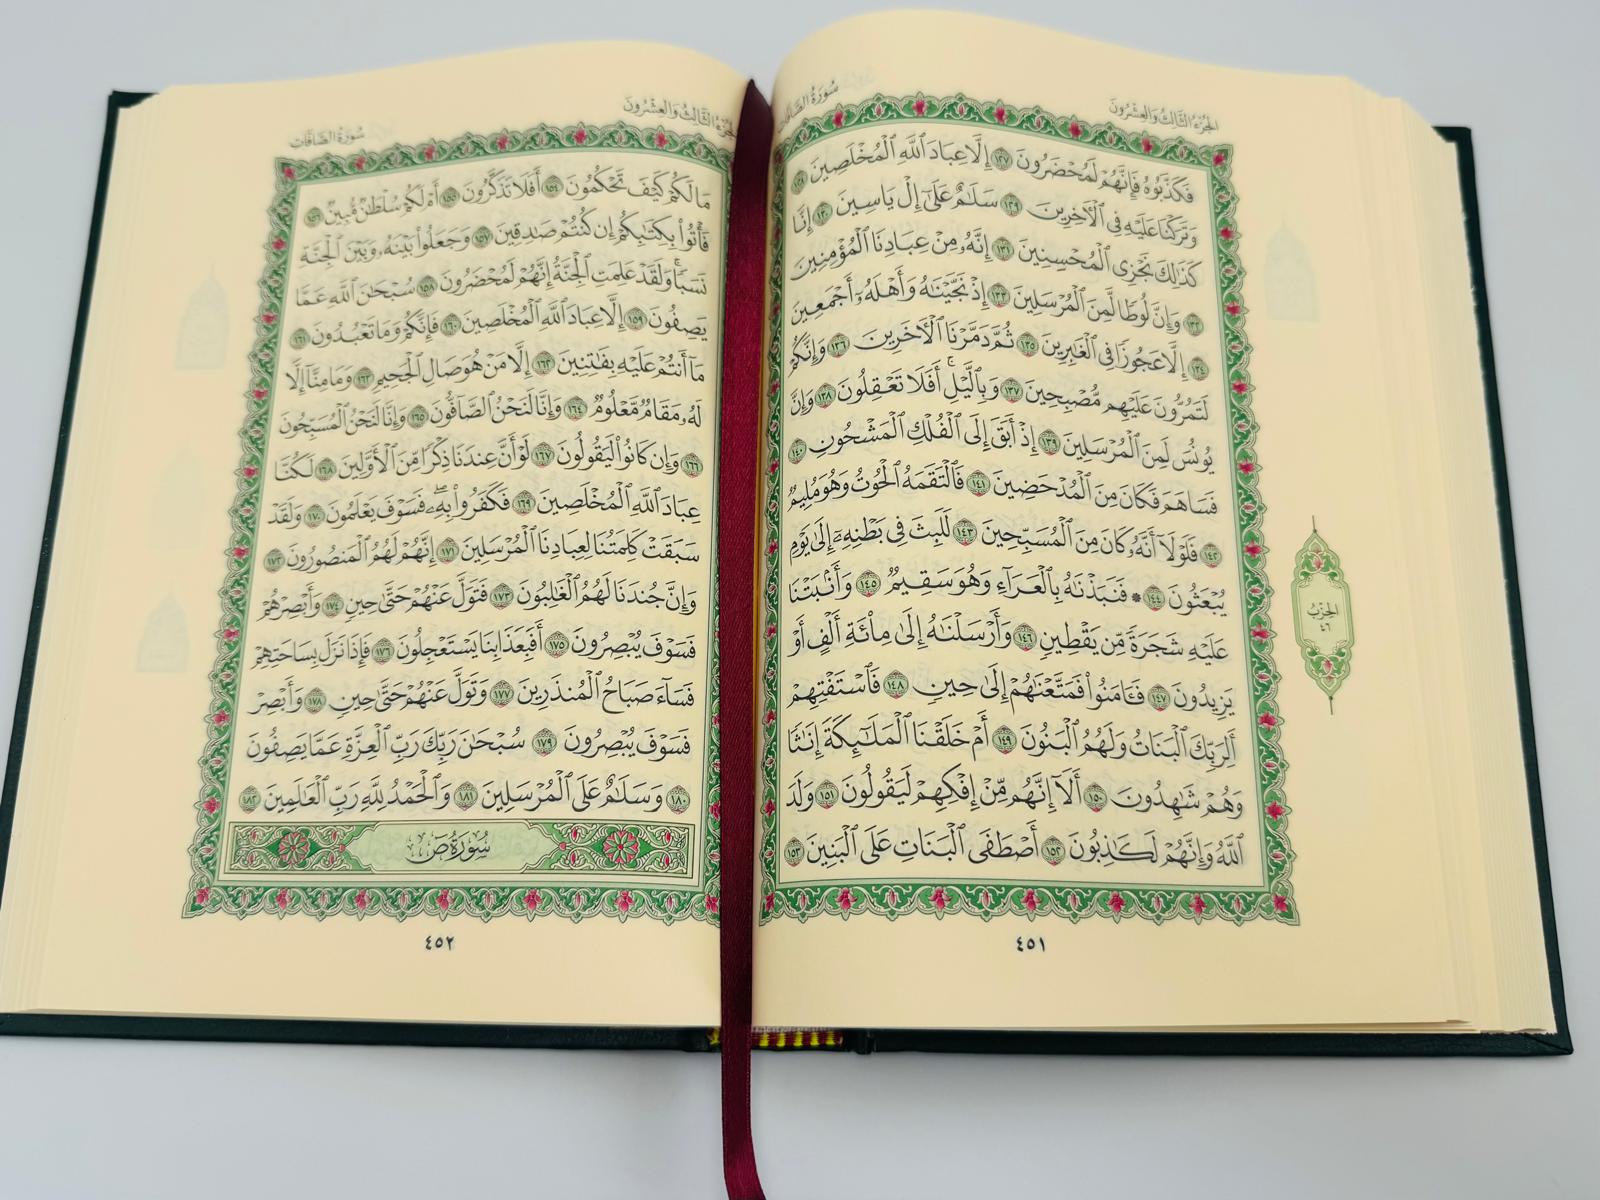 الجزء الثالث والعشرون
سورة الصافات
فَكَذَّبُوهُ فَإِنَّهُمْ لَمُحْضَرُونَ ١٢٧ إِلَّا عِبَادَ ٱللَّهِ ٱلْمُخْلَصِينَ ١٢٨
وَتَرَكْنَا عَلَيْهِ فِى ٱلْءَاخِرِينَ ١٢٩ سَلَٰمٌ عَلَىٰٓ إِلْ يَاسِينَ ١٣٠ إِنَّا
كَذَٰلِكَ نَجْزِى ٱلْمُحْسِنِينَ ١٣١ إِنَّهُۥ مِنْ عِبَادِنَا ٱلْمُؤْمِنِينَ
١٣٢ وَإِنَّ لُوطًا لَّمِنَ ٱلْمُرْسَلِينَ ١٣٣ إِذْ نَجَّيْنَٰهُ وَأَهْلَهُۥٓ أَجْمَعِينَ
١٣٤ إِلَّا عَجُوزًا فِى ٱلْغَٰبِرِينَ ١٣٥ ثُمَّ دَمَّرْنَا ٱلْءَاخَرِينَ ١٣٦ وَإِنَّكُمْ
لَتَمُرُّونَ عَلَيْهِم مُّصْبِحِينَ ١٣٧ وَبِٱلَّيْلِ ۗ أَفَلَا تَعْقِلُونَ ١٣٨ وَإِنَّ
يُونُسَ لَمِنَ ٱلْمُرْسَلِينَ ١٣٩ إِذْ أَبَقَ إِلَى ٱلْفُلْكِ ٱلْمَشْحُونِ ١٤٠
فَسَاهَمَ فَكَانَ مِنَ ٱلْمُدْحَضِينَ ١٤١ فَٱلْتَقَمَهُ ٱلْحُوتُ وَهُوَ مُلِيمٌ
١٤٢ فَلَوْلَآ أَنَّهُۥ كَانَ مِنَ ٱلْمُسَبِّحِينَ ١٤٣ لَلَبِثَ فِى بَطْنِهِۦٓ إِلَىٰ يَوْمِ
يُبْعَثُونَ ١٤٤ ۞ فَنَبَذْنَٰهُ بِٱلْعَرَآءِ وَهُوَ سَقِيمٌ ١٤٥ وَأَنۢبَتْنَا
عَلَيْهِ شَجَرَةً مِّن يَقْطِينٍ ١٤٦ وَأَرْسَلْنَٰهُ إِلَىٰ مِا۟ئَةِ أَلْفٍ أَوْ
يَزِيدُونَ ١٤٧ فَـَٔامَنُوا۟ فَمَتَّعْنَٰهُمْ إِلَىٰ حِينٍ ١٤٨ فَٱسْتَفْتِهِمْ
أَلِرَبِّكَ ٱلْبَنَاتُ وَلَهُمُ ٱلْبَنُونَ ١٤٩ أَمْ خَلَقْنَا ٱلْمَلَٰٓئِكَةَ إِنَٰثًا
وَهُمْ شَٰهِدُونَ ١٥٠ أَلَآ إِنَّهُم مِّنْ إِفْكِهِمْ لَيَقُولُونَ ١٥١ وَلَدَ
ٱللَّهُ وَإِنَّهُمْ لَكَٰذِبُونَ ١٥٢ أَصْطَفَى ٱلْبَنَاتِ عَلَى ٱلْبَنِينَ ١٥٣
الحزب
٤٦
٤٥١
الجزء الثالث والعشرون
سورة الصافات
مَا لَكُمْ كَيْفَ تَحْكُمُونَ ١٥٤ أَفَلَا تَذَكَّرُونَ ١٥٥ أَمْ لَكُمْ سُلْطَٰنٌ مُّبِينٌ ١٥٦
فَأْتُوا۟ بِكِتَٰبِكُمْ إِن كُنتُمْ صَٰدِقِينَ ١٥٧ وَجَعَلُوا۟ بَيْنَهُۥ وَبَيْنَ ٱلْجِنَّةِ
نَسَبًا ۚ وَلَقَدْ عَلِمَتِ ٱلْجِنَّةُ إِنَّهُمْ لَمُحْضَرُونَ ١٥٨ سُبْحَٰنَ ٱللَّهِ عَمَّا
يَصِفُونَ ١٥٩ إِلَّا عِبَادَ ٱللَّهِ ٱلْمُخْلَصِينَ ١٦٠ فَإِنَّكُمْ وَمَا تَعْبُدُونَ ١٦١
مَآ أَنتُمْ عَلَيْهِ بِفَٰتِنِينَ ١٦٢ إِلَّا مَنْ هُوَ صَالِ ٱلْجَحِيمِ ١٦٣ وَمَا مِنَّآ إِلَّا
لَهُۥ مَقَامٌ مَّعْلُومٌ ١٦٤ وَإِنَّا لَنَحْنُ ٱلصَّآفُّونَ ١٦٥ وَإِنَّا لَنَحْنُ ٱلْمُسَبِّحُونَ
١٦٦ وَإِن كَانُوا۟ لَيَقُولُونَ ١٦٧ لَوْ أَنَّ عِندَنَا ذِكْرًا مِّنَ ٱلْأَوَّلِينَ ١٦٨ لَكُنَّا
عِبَادَ ٱللَّهِ ٱلْمُخْلَصِينَ ١٦٩ فَكَفَرُوا۟ بِهِۦ ۖ فَسَوْفَ يَعْلَمُونَ ١٧٠ وَلَقَدْ
سَبَقَتْ كَلِمَتُنَا لِعِبَادِنَا ٱلْمُرْسَلِينَ ١٧١ إِنَّهُمْ لَهُمُ ٱلْمَنصُورُونَ ١٧٢
وَإِنَّ جُندَنَا لَهُمُ ٱلْغَٰلِبُونَ ١٧٣ فَتَوَلَّ عَنْهُمْ حَتَّىٰ حِينٍ ١٧٤ وَأَبْصِرْهُمْ
فَسَوْفَ يُبْصِرُونَ ١٧٥ أَفَبِعَذَابِنَا يَسْتَعْجِلُونَ ١٧٦ فَإِذَا نَزَلَ بِسَاحَتِهِمْ
فَسَآءَ صَبَاحُ ٱلْمُنذَرِينَ ١٧٧ وَتَوَلَّ عَنْهُمْ حَتَّىٰ حِينٍ ١٧٨ وَأَبْصِرْ
فَسَوْفَ يُبْصِرُونَ ١٧٩ سُبْحَٰنَ رَبِّكَ رَبِّ ٱلْعِزَّةِ عَمَّا يَصِفُونَ
١٨٠ وَسَلَٰمٌ عَلَى ٱلْمُرْسَلِينَ ١٨١ وَٱلْحَمْدُ لِلَّهِ رَبِّ ٱلْعَٰلَمِينَ ١٨٢
سُورَةُ صٓ
٤٥٢